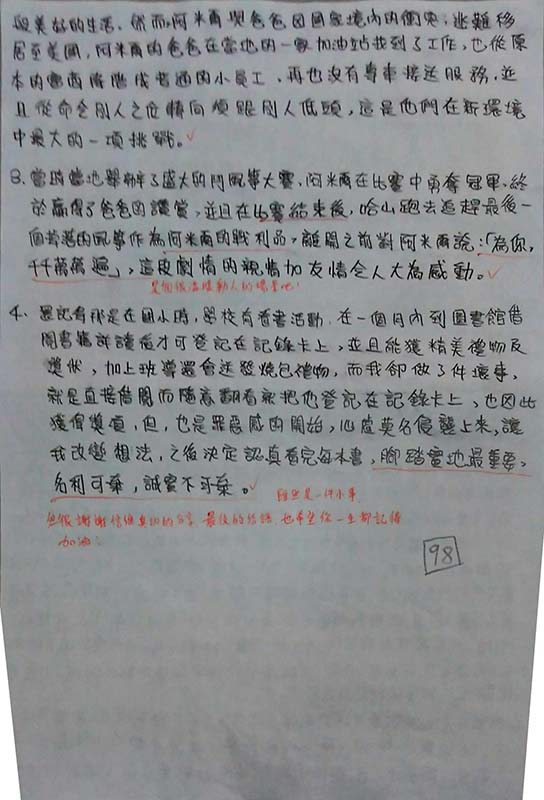 美好的生活。然而阿米爾與爸爸因國家境內的衝突，逃難移
居至美國，阿米爾的爸爸在當地的一家加油站找到了工作，也從原
本的富商階降成普通的小員工，再也沒有專車接送服務，並
且從命令別人之位轉向須跟別人低頭，這是他們在新環境
中最大的一項挑戰。
3. 當時當地舉辦了盛大的鬥風箏大賽，阿米爾在比賽中勇奪冠軍，終
於贏得了爸爸的讚賞，並且在比賽結束後，哈山跑去追趕最後一
個掉落的風箏作為阿米爾的戰利品，離開之前對阿米爾說：「為你，
千千萬萬遍」，這段劇情的親情加友情令人大為感動。
是個很溫馨動人的場景吧！
4. 還記得我是在國小時，學校有看書活動，在一個月內到圖書館借
閱書籍詳讀後才可登記在記錄卡上，並且能獲精美禮物及
獎狀，加上班導還會送發燒包禮物，而我卻做了件壞事，
就是直接借閱而隨意翻看就把他登記在記錄卡上，也因此
獲得獎項，但，也是罪惡感的開始，心虛莫名侵襲上來，讓
我改變想法，之後決定認真看完每本書，腳踏實地最重要，
名利可棄，誠實不可棄。
雖然是一件小事，
但很謝謝你個真切的分享，最後的結語，也希望你一生都記得
加油：
98